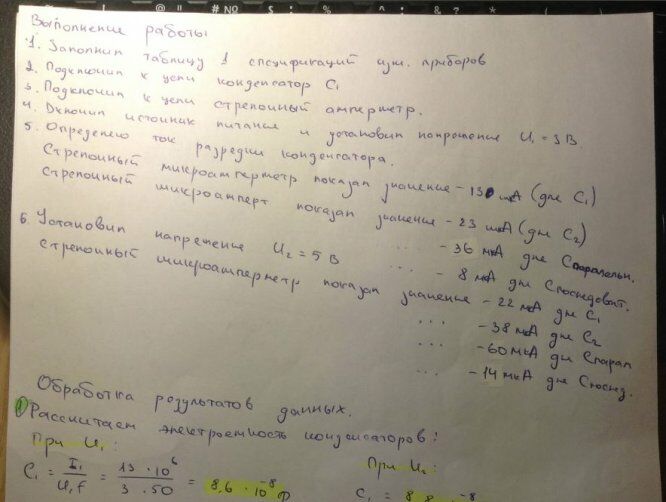 Выполнение работы
1. Заполнил таблицу 1 спецификаций изм. приборов
2. Подключил к цепи конденсатор C₁
3. Подключил к цепи стрелочный амперметр.
4. Включил источник питания и установил напряжение U₁ = 3 В.
5. Определено ток разрядки конденсатора.
Стрелочный микроамперметр показал значение - 130 мкА (для C₁)
Стрелочный микроамперт показал значение - 23 мкА (для C₂)
... - 36 мкА для Cпаралельн.
... - 8 мкА для Cпоследоват.
6. Установил напряжение U₂ = 5 В
Стрелочный микроамперметр показал значение - 22 мкА для C₁
... - 38 мкА для C₂
... - 60 мкА для Cпарал
... - 14 мкА для Cпослед.
Обработка результатов данных.
1 Рассчитаем электроемкость конденсаторов:
При U₁: При U₂:
C₁ = I₁/U₁f = 13 · 10⁶/3 · 50 = 8,6 · 10⁻⁸ Ф C₁ = 8,8 · 10⁻⁸